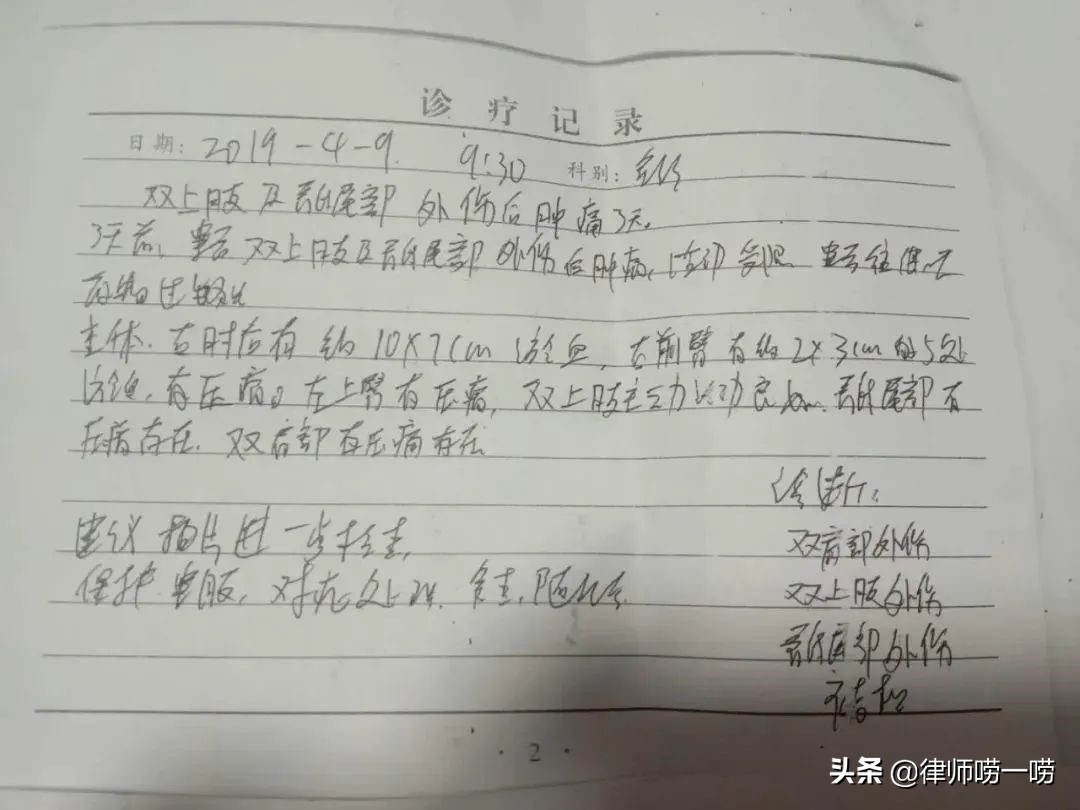 诊疗记录
日期: 2019-4-9. 9:30 科别:
双上肢及骶尾部外伤后肿痛3天。
3天前, 患者双上肢及骶尾部外伤后肿痛, 活动受限 患者往
查体. 右肘后有约10×7cm淤血, 右前臂有约2×3cm的5处
淤血, 有压痛。左上臂有压痛, 双上肢主动活动良好 骶尾部有
压痛存在. 双肩部有压痛存在
诊断:
建议拍片进一步检查,
双肩部外伤
保护患肢, 对症处理. 复查, 随诊
双上肢外伤
骶尾部外伤
· 2 ·
头条 @律师唠一唠